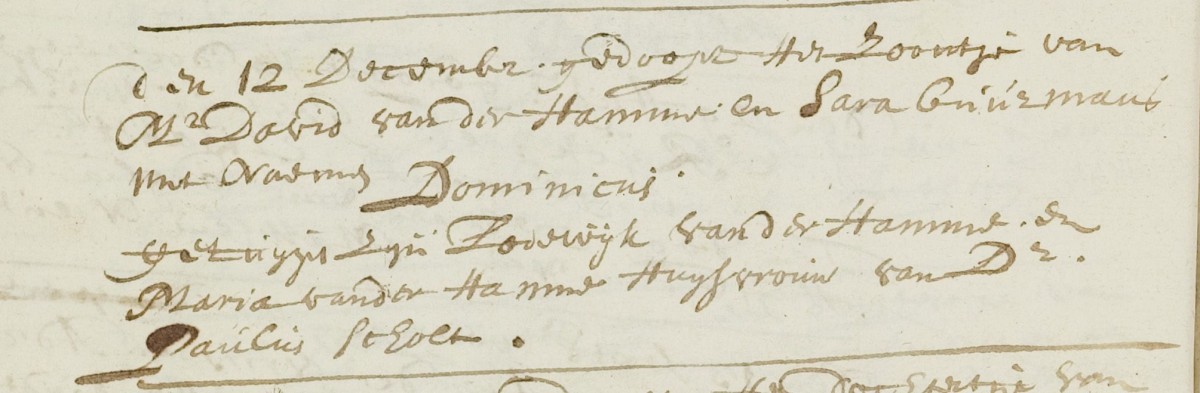 den 12 December. gedoopt Het Zoontje van
Mr David van der Hamme en Sara Buurmans
met Naeme Dominicus.
getuyge Zyn Lodewyk van der Hamme. en
Maria vander Hamme Huysvrouw van Dr.
Paulus Scholt.
Het Dochtertje van